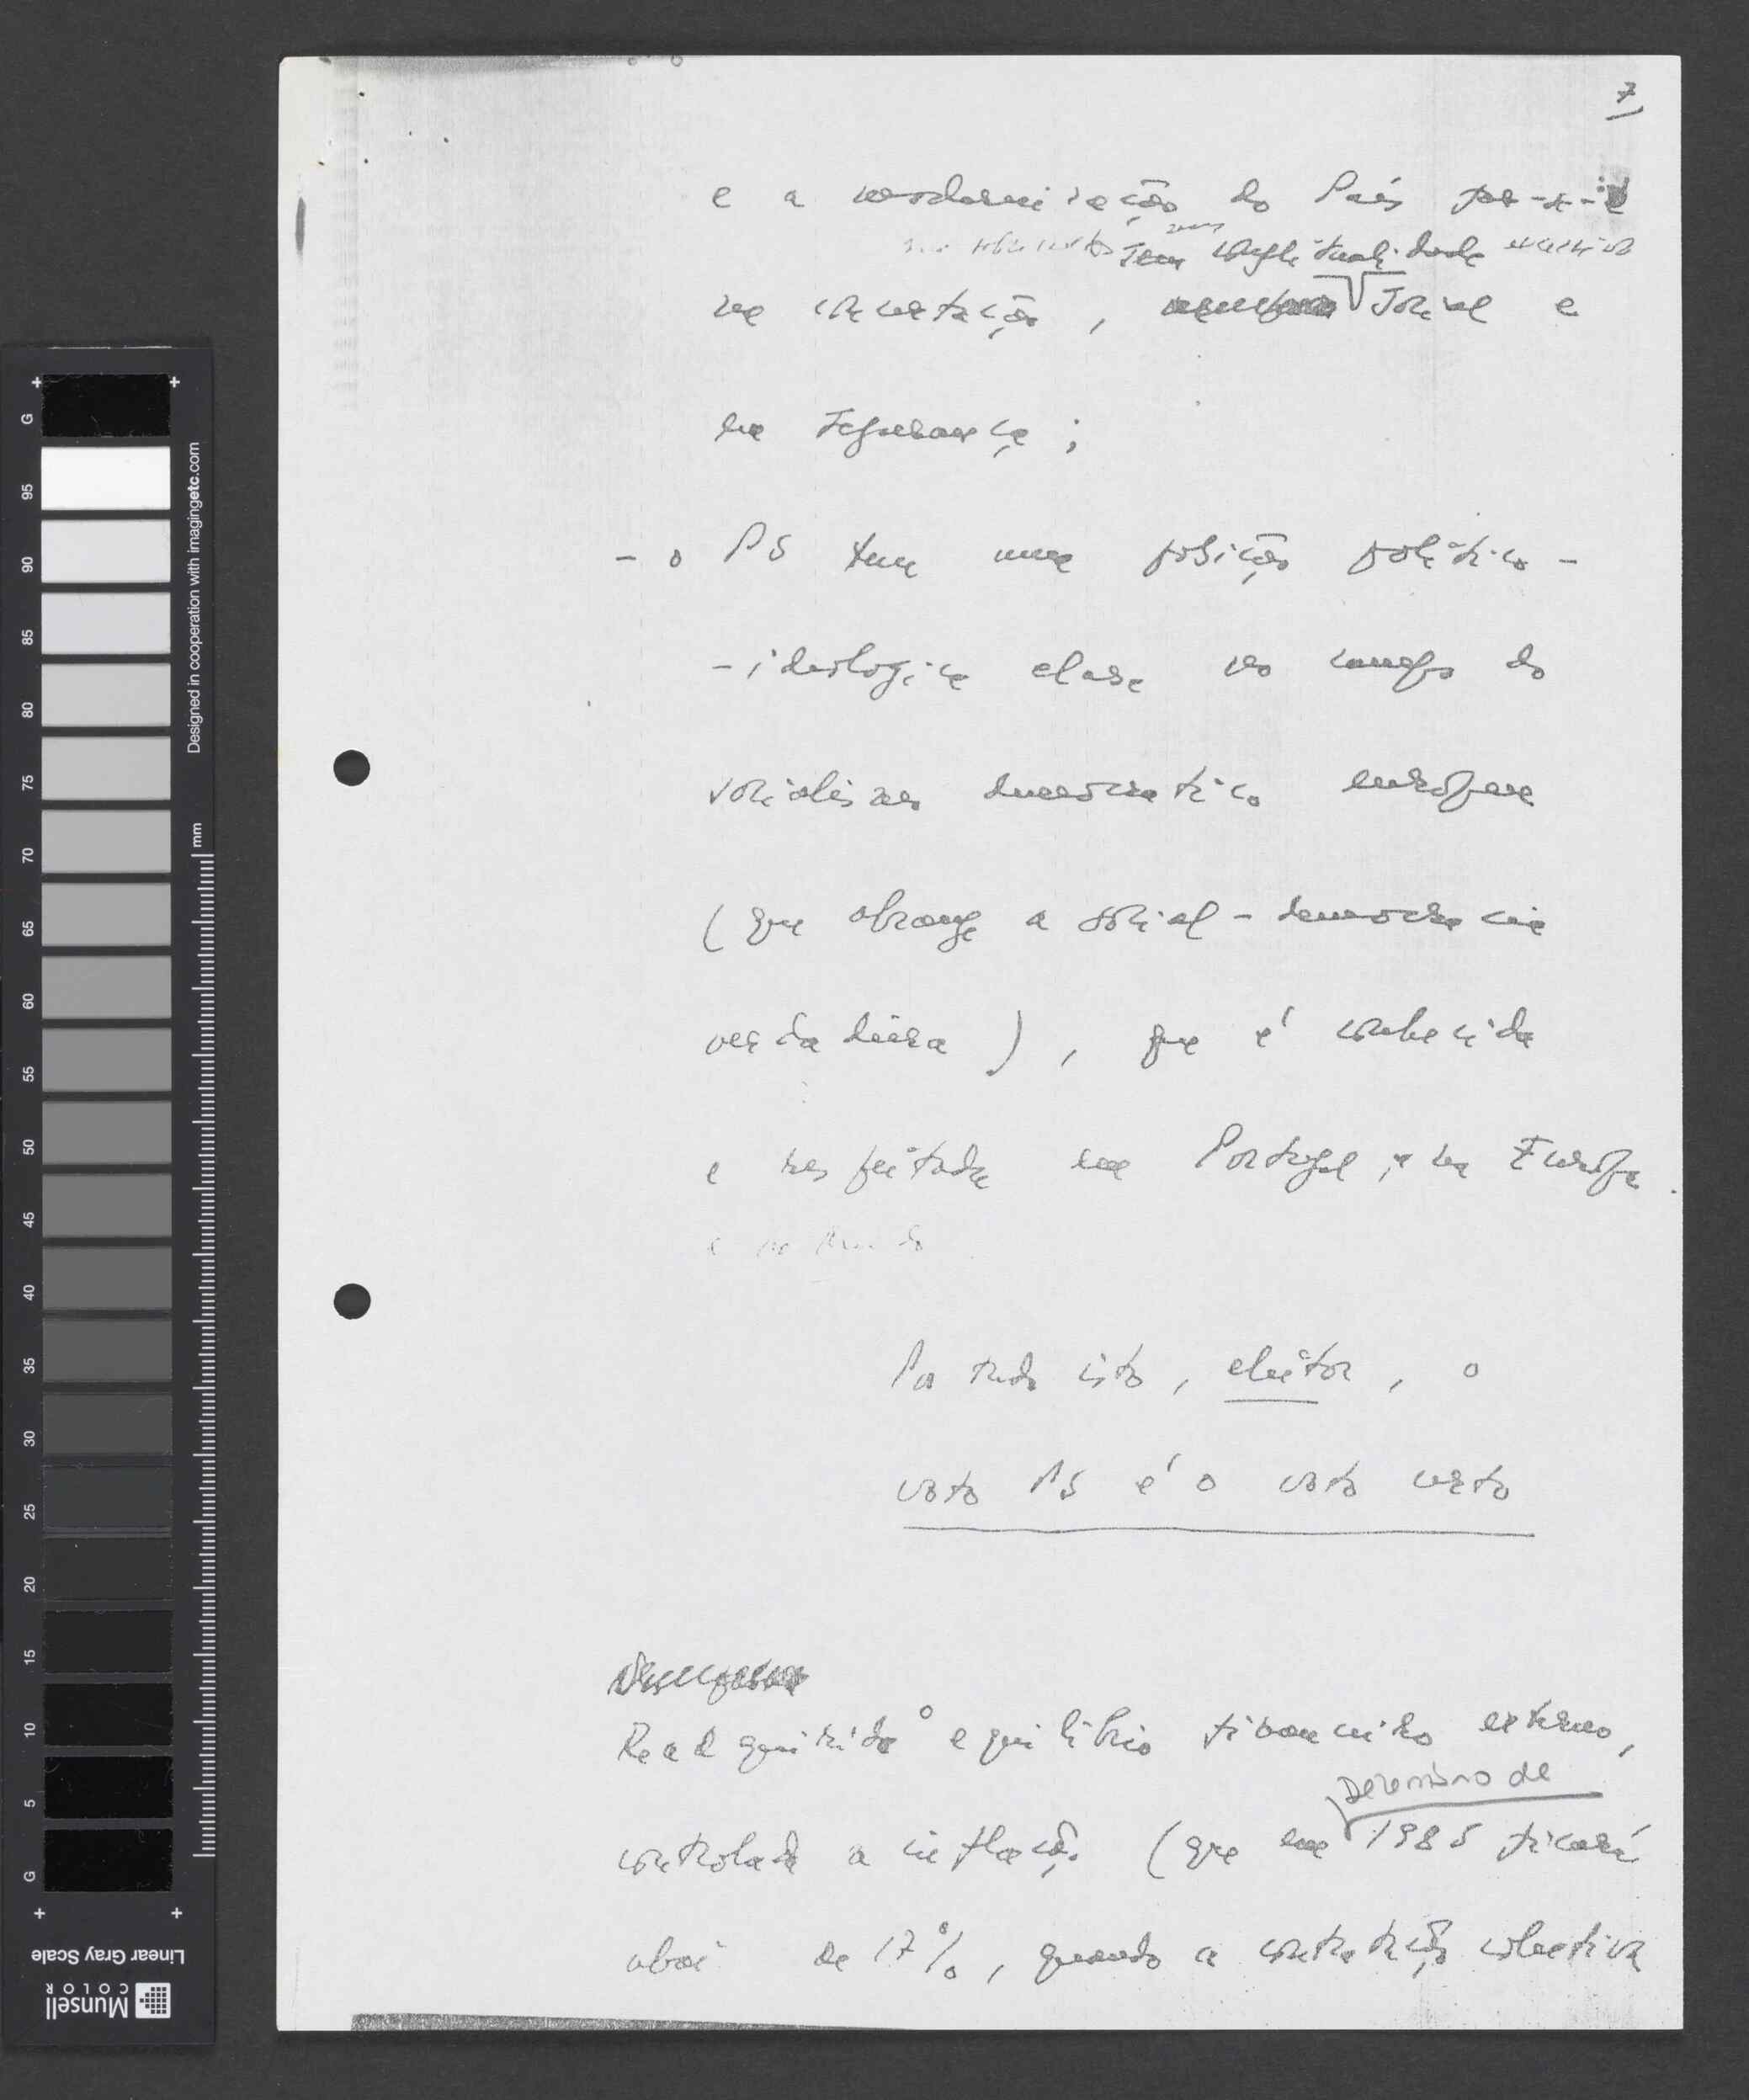 7
e a modernização do País far-se-á
sem conflitualidade
na concertação, social e
na segurança;
- o PS tem uma posição político-
-ideologica clara no campo do
socialismo democrático europeu
(que abrange a social-democracia
verdadeira), que é conhecida
e respeitada em Portugal, e na Europa.
e no Mundo
Por tudo isto, eleitor, o
voto PS é o voto certo
Readquirido o equilíbrio financeiro externo,
Dezembro de
controlada a inflação (que em 1985 ficará
abai de 17%, quando a contratação colectiva
G
95
90
85
80
75
70
65
60
55
50
45
40
35
30
25
20
15
10
5
G
mm
Designed in cooperation with imagingetc.com
Linear Gray Scale
Munsell
COLOR